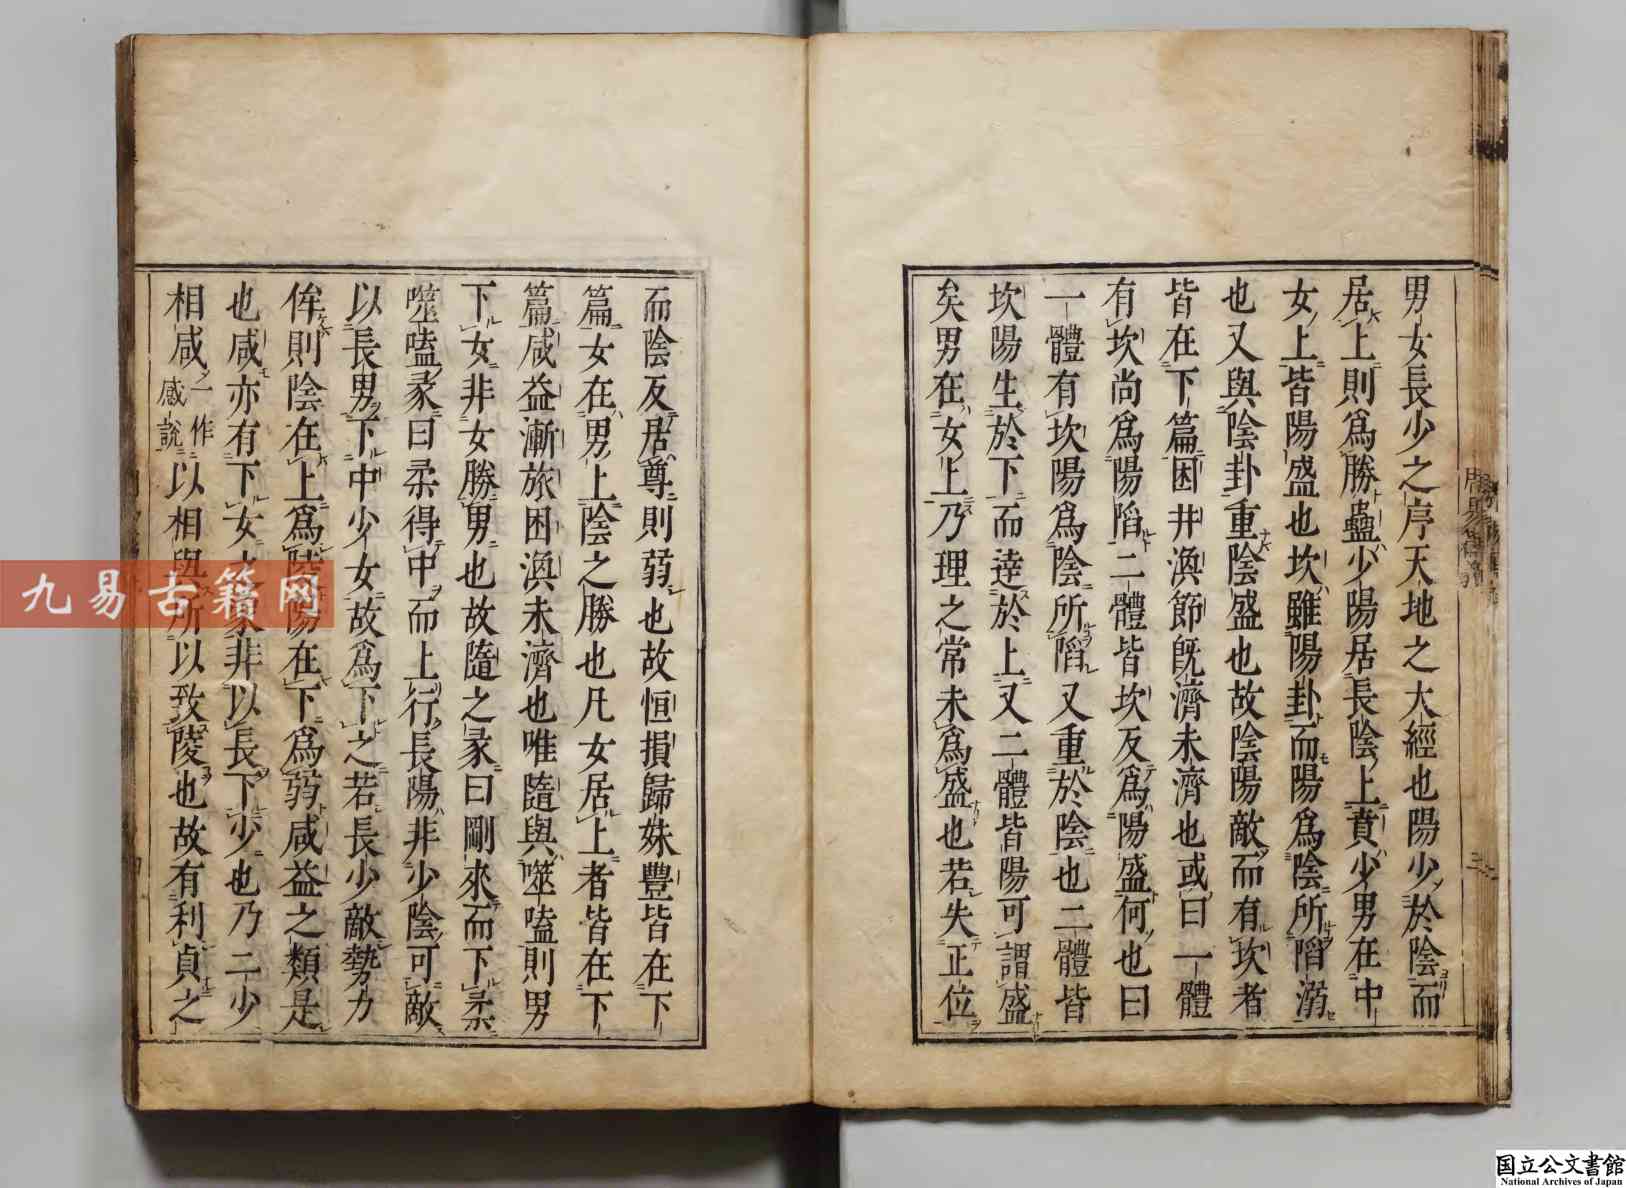 男女長少之序天地之大經也陽少於陰而
居上則爲勝蠱少陽居長陰上賁少男在中
女上皆陽盛也坎雖陽卦而陽爲陰所陷溺
也又與陰卦重陰盛也故陰陽敵而有坎者
皆在下篇困井渙節旣濟未濟也或曰一體
有坎尚爲陽陷二體皆坎反爲陽盛何也曰
一體有坎陽爲陰所陷又重於陰也二體皆
坎陽生於下而達於上又二體皆陽可謂盛
矣男在女上乃理之常未爲盛也若失正位
而陰反居尊則弱也故恒損歸妹豐皆在下
篇女在男上陰之勝也凡女居上者皆在下
篇咸益漸旅困渙未濟也唯隨與噬嗑則男
下女非女勝男也故隨之彖曰剛來而下柔
噬嗑彖曰柔得中而上行長陽非少陰可敵
以長男下中少女故爲下之若長少敵勢力
侔則陰在上爲陵陽在下爲弱咸益之類是
也咸亦有下女之象非以長下少也乃二少
相咸一作感說以相與所以致陵也故有利貞之
九易古籍网
国立公文書館
National Archives of Japan